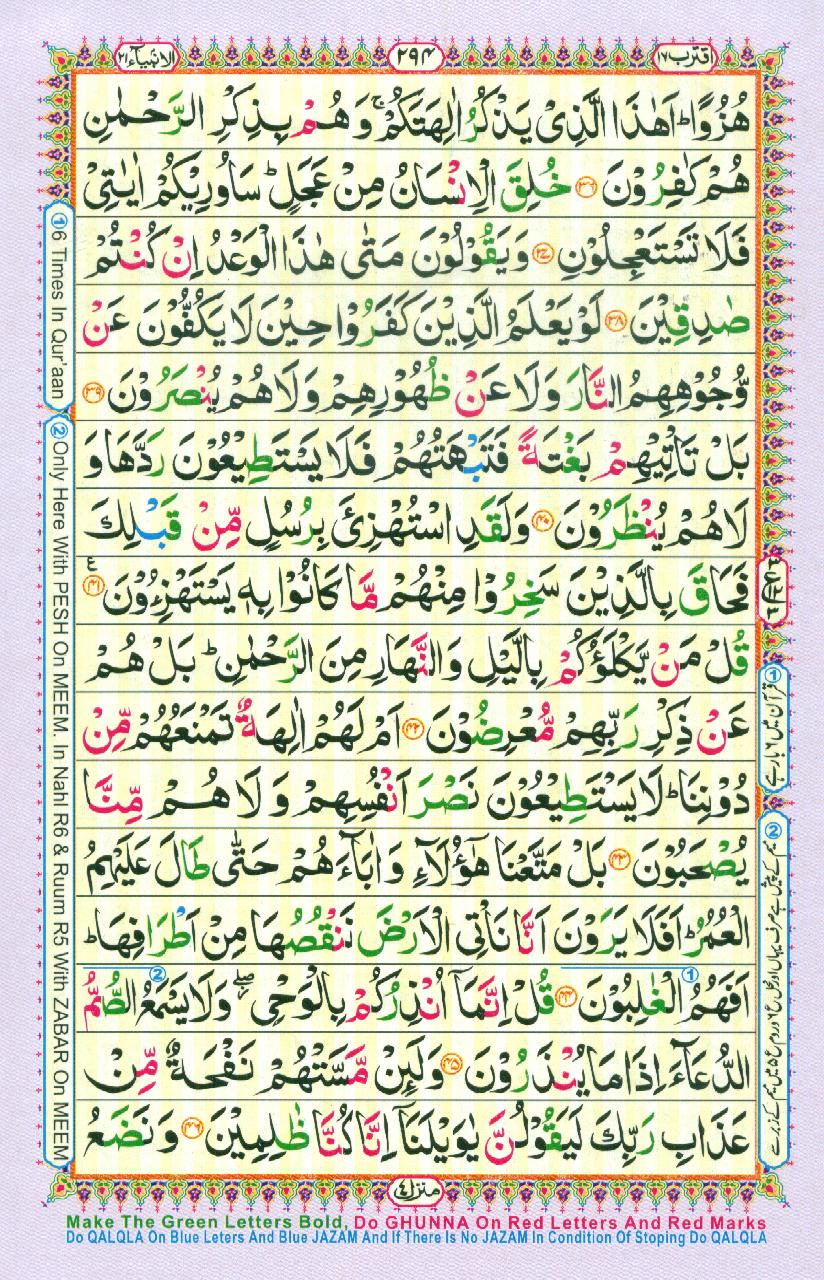 اقترب ١٧
٢٩٤
الانبیآء ٢١
هُزُوًا ؕ اَهٰذَا الَّذِیْ یَذْكُرُ اٰلِهَتَكُمْ ۚ وَ هُمْ بِذِكْرِ الرَّحْمٰنِ
هُمْ كٰفِرُوْنَ ﴿۳۶﴾ خُلِقَ الْاِنْسَانُ مِنْ عَجَلٍ ؕ سَاُورِیْكُمْ اٰیٰتِیْ
فَلَا تَسْتَعْجِلُوْنِ ﴿۳۷﴾ وَ یَقُوْلُوْنَ مَتٰی هٰذَا الْوَعْدُ اِنْ كُنْتُمْ
صٰدِقِیْنَ ﴿۳۸﴾ لَوْ یَعْلَمُ الَّذِیْنَ كَفَرُوْا حِیْنَ لَا یَكُفُّوْنَ عَنْ
وُّجُوْهِهِمُ النَّارَ وَ لَا عَنْ ظُهُوْرِهِمْ وَ لَا هُمْ یُنْصَرُوْنَ ﴿۳۹﴾
بَلْ تَاْتِیْهِمْ بَغْتَةً فَتَبْهَتُهُمْ فَلَا یَسْتَطِیْعُوْنَ رَدَّهَا وَ
لَا هُمْ یُنْظَرُوْنَ ﴿۴۰﴾ وَ لَقَدِ اسْتُهْزِئَ بِرُسُلٍ مِّنْ قَبْلِكَ
فَحَاقَ بِالَّذِیْنَ سَخِرُوْا مِنْهُمْ مَّا كَانُوْا بِهٖ یَسْتَهْزِءُوْنَ ﴿۴۱﴾ ع
قُلْ مَنْ یَّكْلَؤُكُمْ بِالَّیْلِ وَ النَّهَارِ مِنَ الرَّحْمٰنِ ؕ بَلْ هُمْ
عَنْ ذِكْرِ رَبِّهِمْ مُّعْرِضُوْنَ ﴿۴۲﴾ اَمْ لَهُمْ اٰلِهَةٌ تَمْنَعُهُمْ مِّنْ
دُوْنِنَا ؕ لَا یَسْتَطِیْعُوْنَ نَصْرَ اَنْفُسِهِمْ وَ لَا هُمْ مِّنَّا
یُصْحَبُوْنَ ﴿۴۳﴾ بَلْ مَتَّعْنَا هٰۤؤُلَآءِ وَ اٰبَآءَهُمْ حَتّٰی طَالَ عَلَیْهِمُ
الْعُمُرُ ؕ اَفَلَا یَرَوْنَ اَنَّا نَاْتِی الْاَرْضَ نَنْقُصُهَا مِنْ اَطْرَافِهَا ؕ
اَفَهُمُ الْغٰلِبُوْنَ ﴿۴۴﴾ قُلْ اِنَّمَاۤ اُنْذِرُكُمْ بِالْوَحْیِ ۖ وَ لَا یَسْمَعُ الصُّمُّ
الدُّعَآءَ اِذَا مَا یُنْذَرُوْنَ ﴿۴۵﴾ وَ لَىِٕنْ مَّسَّتْهُمْ نَفْحَةٌ مِّنْ
عَذَابِ رَبِّكَ لَیَقُوْلُنَّ یٰوَیْلَنَاۤ اِنَّا كُنَّا ظٰلِمِیْنَ ﴿۴۶﴾ وَ نَضَعُ
منزل ٤
① 6 Times In Qur'aan
② Only Here With PESH On MEEM. In Nahl R6 & Ruum R5 With ZABAR On MEEM
① قرآن میں ۶ بار ہے
Make The Green Letters Bold, Do GHUNNA On Red Letters And Red Marks
Do QALQLA On Blue Leters And Blue JAZAM And If There Is No JAZAM In Condition Of Stoping Do QALQLA